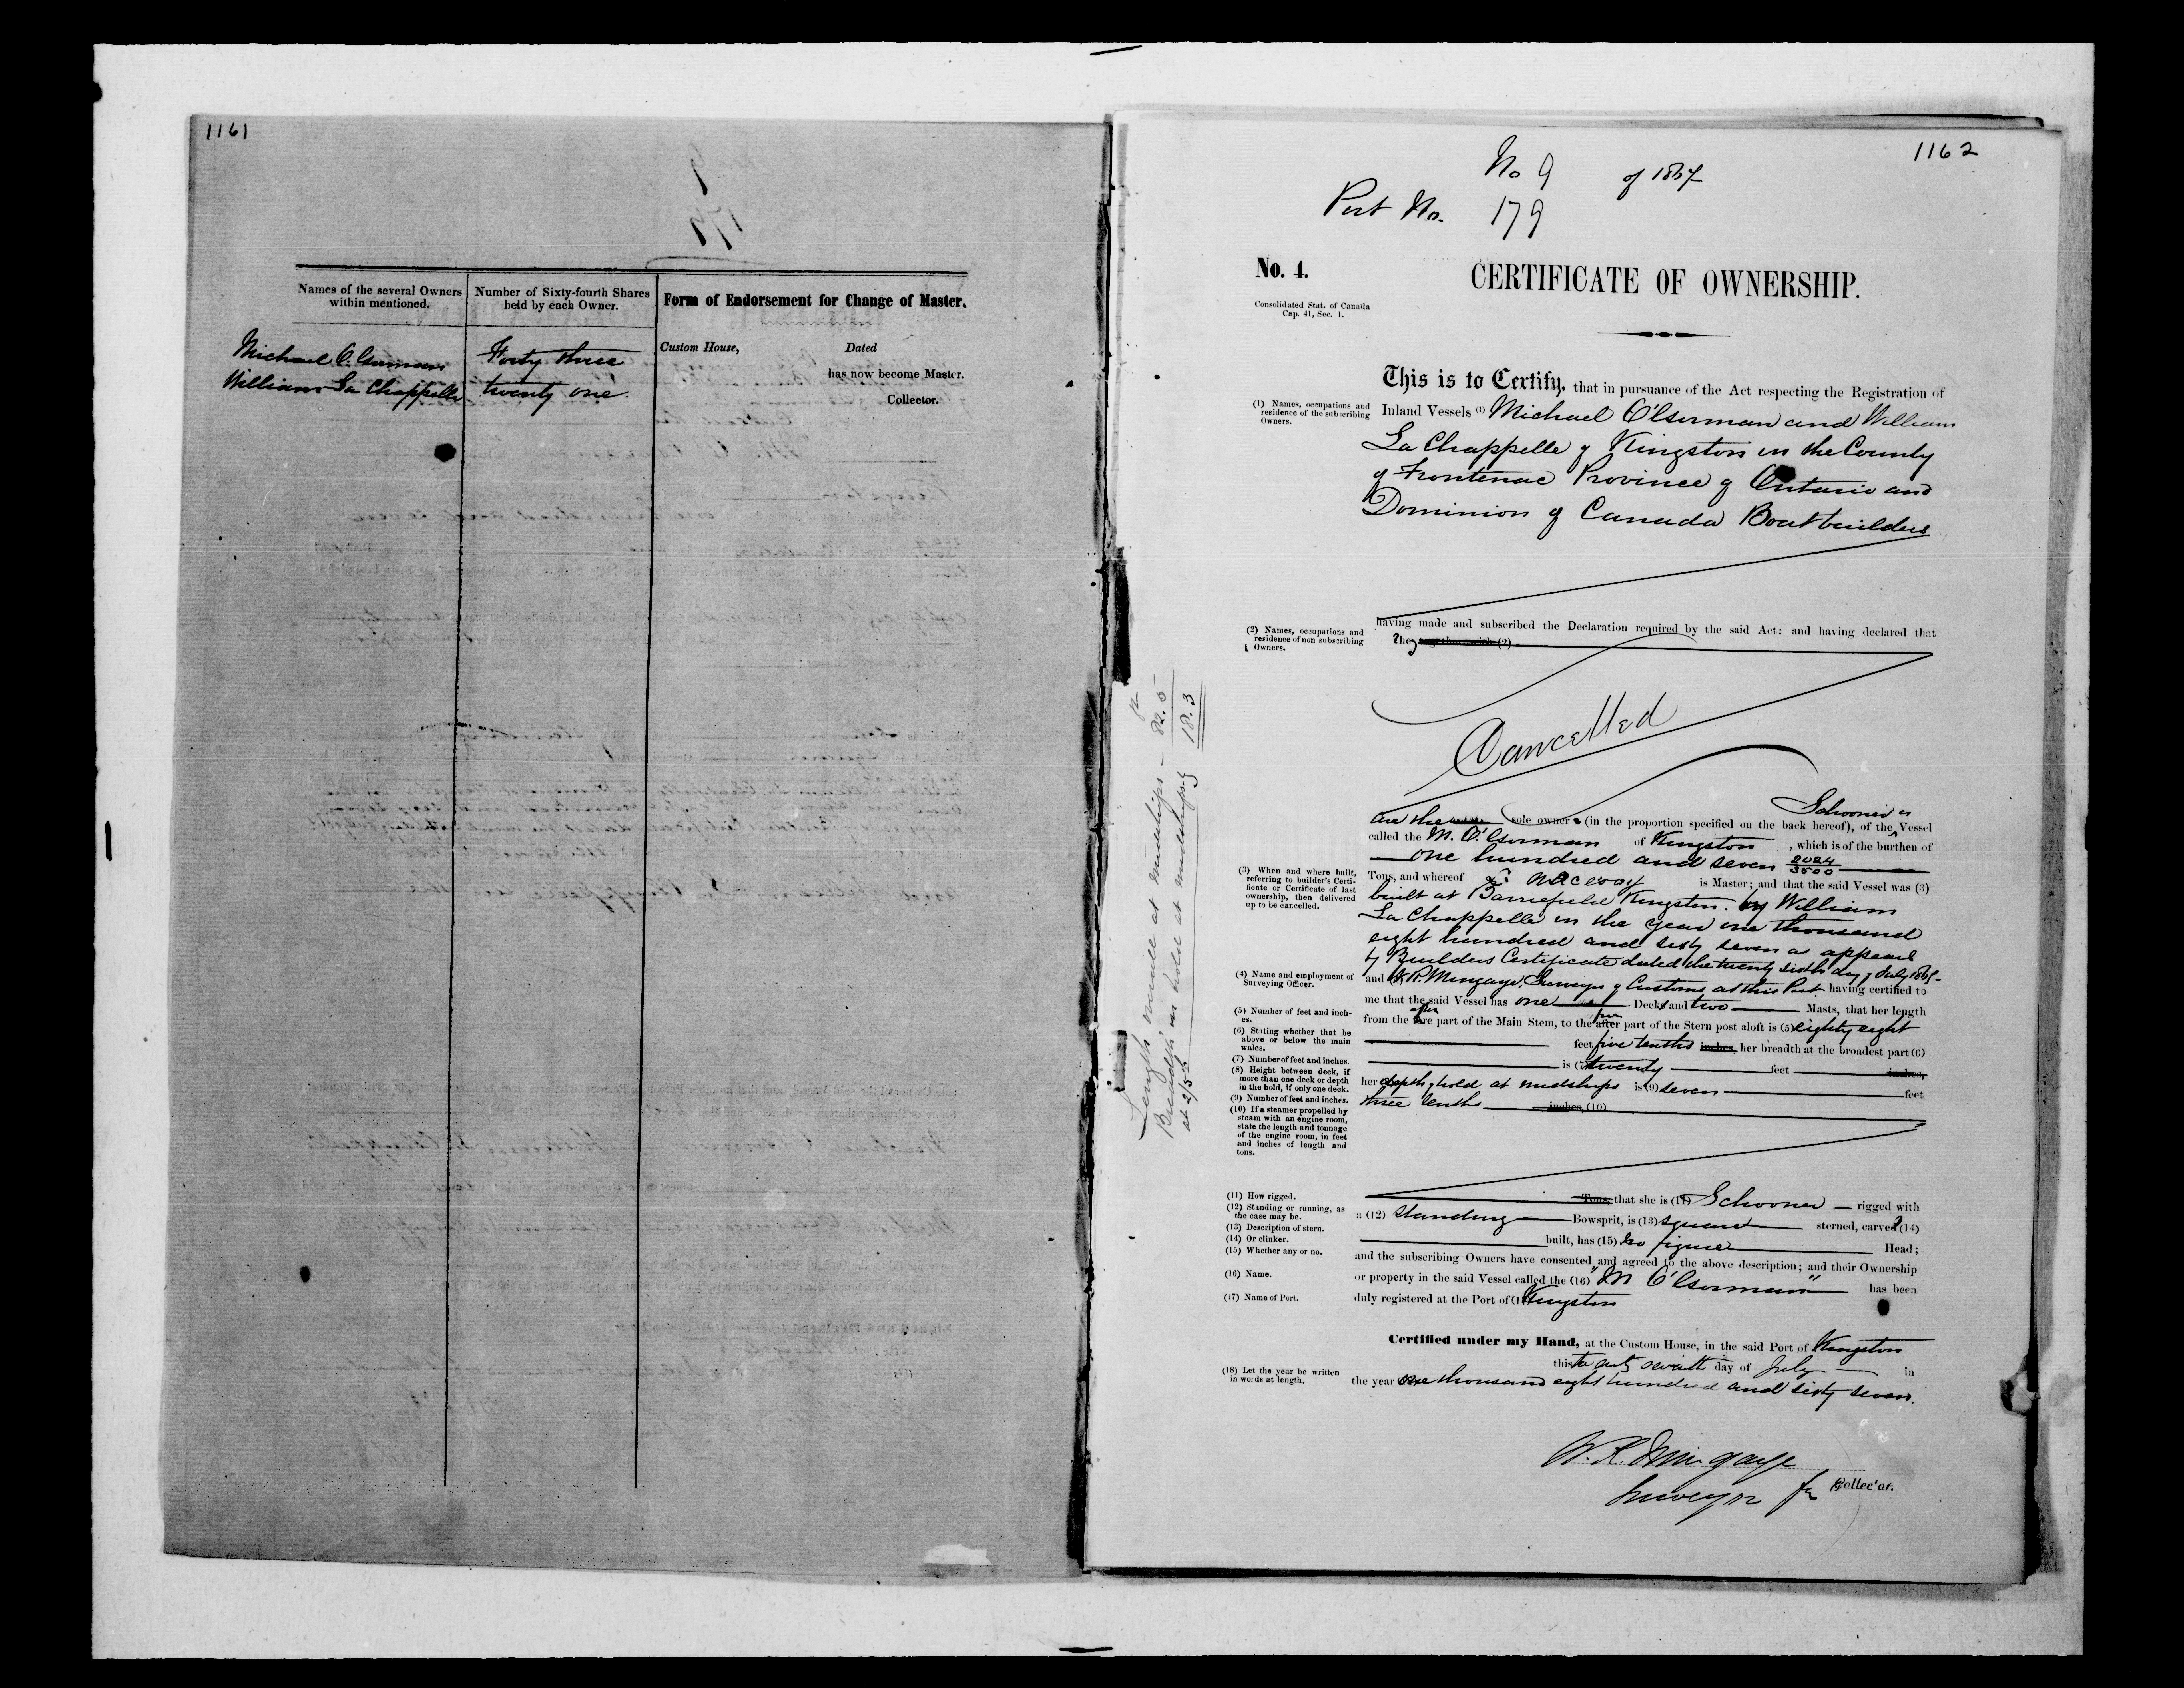 1161
Names of the several Owners
within mentioned.
Number of Sixty-fourth Shares
held by each Owner.
Form of Endorsement for Change of Master.
Michael O'Gorman
Forty three
Custom House,
Dated
has now become Master.
William La Chappelle
twenty one.
Collector.
1162
No 9 of 1867
Port No. 179
No. 4.
CERTIFICATE OF OWNERSHIP.
Consolidated Stat. of Canada
Cap. 41, Sec. 1.
This is to Certify, that in pursuance of the Act respecting the Registration of
(1) Names, occupations and
residence of the subscribing
Owners.
Inland Vessels (1) Michael O'Gorman and William
La Chappelle of Kingston in the County
of Frontenac Province of Ontario and
Dominion of Canada Boatbuilders
having made and subscribed the Declaration required by the said Act: and having declared that
(2) Names, occupations and
residence of non subscribing
Owners.
they together with (2)
Cancelled
Schooner or
are the sole owners (in the proportion specified on the back hereof), of the Vessel
called the M. O'Gorman of Kingston, which is of the burthen of
one hundred and seven 2024/3500
(3) When and where built,
referring to builder's Certi-
ficate or Certificate of last
ownership, then delivered
up to be cancelled.
Tons, and whereof is Master; and that the said Vessel was (3)
built at Barriefield Kingston. by William
La Chappelle in the year one thousand
eight hundred and sixty seven as appears
by Builders Certificate dated the twenty sixth day of July 1867-
(4) Name and employment of
Surveying Officer.
and (4) W.R. Mingaye, Surveyor of Customs at this Port having certified to
me that the said Vessel has one Deck and two Masts, that her length
(5) Number of feet and inch-
es.
from the after fore part of the Main Stem, to the fore after part of the Stern post aloft is (5) eighty eight
(6) Stating whether that be
above or below the main
wales.
feet five tenths inches, her breadth at the broadest part (6)
(7) Number of feet and inches.
is (7) twenty feet inches,
(8) Height between deck, if
more than one deck or depth
in the hold, if only one deck.
her depth of hold at midships is (9) seven feet
(9) Number of feet and inches.
three tenths inches, (10)
(10) If a steamer propelled by
steam with an engine room,
state the length and tonnage
of the engine room, in feet
and inches of length and
tons.
Length inside at midships - 82.5
Breadth in hold at midships
at 2/5 18.3
(11) How rigged.
Tons, that she is (11) Schooner rigged with
(12) Standing or running, as
the case may be.
a (12) Standing Bowsprit, is (13) square sterned, carvel (14)
(13) Description of stern.
(14) Or clinker.
built, has (15) no figure Head;
(15) Whether any or no.
and the subscribing Owners have consented and agreed to the above description; and their Ownership
(16) Name.
or property in the said Vessel called the (16) "M O'Gorman" has been
(17) Name of Port.
duly registered at the Port of (17) Kingston
Certified under my Hand, at the Custom House, in the said Port of Kingston
this twenty seventh day of July in
(18) Let the year be written
in words at length.
the year one thousand eight hundred and sixty seven.
W. R. Mingaye
Surveyor for Collector.